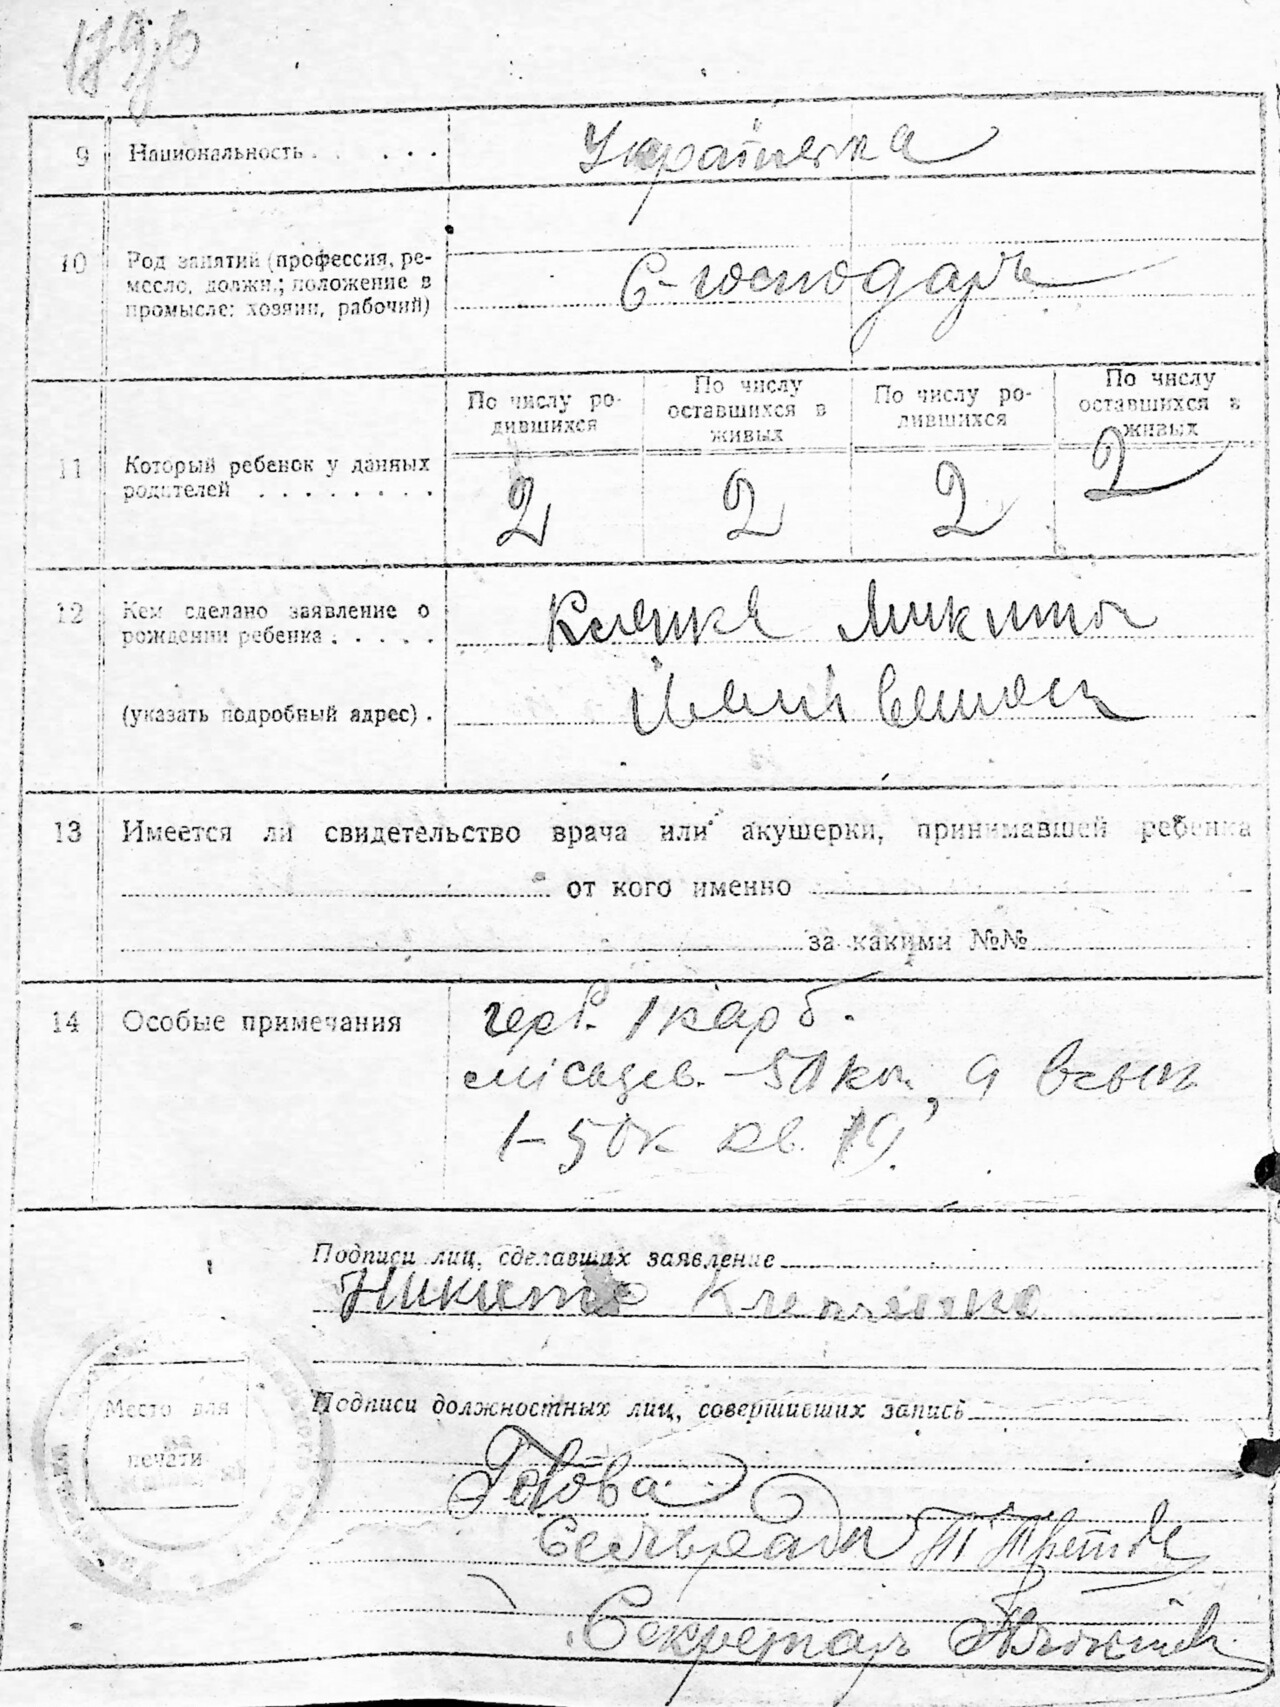 9 Национальность . . . . . Українка
10 Род занятий (профессия, ре-
месло, должн.; положение в
промысле: хозяин, рабочий)
С-господарь
По числу ро-
дившихся
По числу
оставшихся в
живых
По числу ро-
дившихся
По числу
оставшихся в
живых
11 Который ребенок у данных
родителей . . . . . . . .
2 2 2 2
12 Кем сделано заявление о
рождении ребенка . . . . .
Микита
(указать подробный адрес) .
13 Имеется ли свидетельство врача или акушерки, принимавшей ребенка
от кого именно
за какими №№
14 Особые примечания
герб. 1 карб.
місцев. - 50 коп, а всього
1-50к кв. 19.
Подписи лиц, сделавших заявление
Никита
Место для
печати
Подписи должностных лиц, совершивших запись
Голова
Сельради
Секретарь